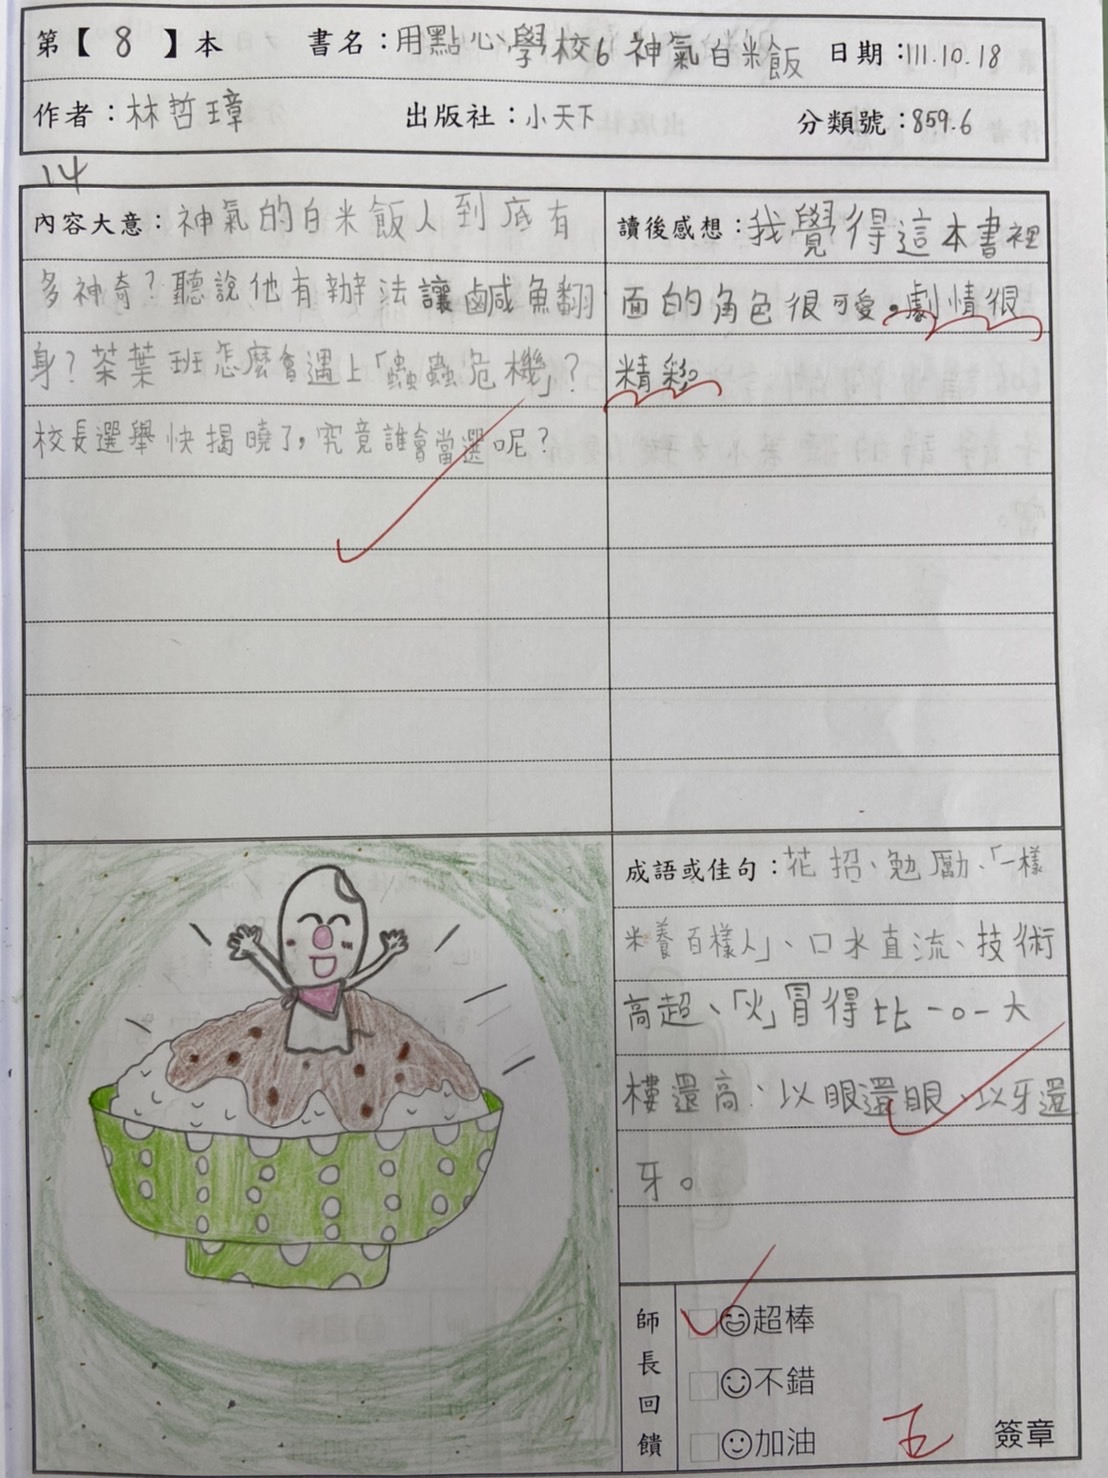 第【 8 】本 書名：用點心學校6 神氣白米飯 日期：111.10.18
作者：林哲璋 出版社：小天下 分類號：859.6
14
內容大意：神氣的白米飯人到底有
多神奇？聽說他有辦法讓鹹魚翻
身？茶葉班怎麼會遇上「蟲蟲危機」？
校長選舉快揭曉了，究竟誰會當選呢？
讀後感想：我覺得這本書裡
面的角色很可愛。劇情很
精彩。
成語或佳句：花招、勉勵、「一樣
米養百樣人」、口水直流、技術
高超、「火」冒得比一〇一大
樓還高、以眼還眼、以牙還
牙。
師長回饋
超棒
不錯
加油
簽章